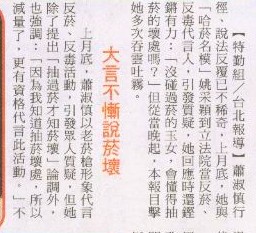 【特勤組╱台北報導】蕭淑慎行
徑、說法反覆已不稀奇，上月底，她與
「哈菸名模」姚采穎到立法院當反菸、
反毒代言人，引發質疑，她回應時還鏗
鏘有力：「沒碰過菸的玉女，會懂得抽
菸的壞處嗎？」但從當晚起，本報目擊
她多次吞雲吐霧。
大言不慚說菸壞
上月底，蕭淑慎以老菸槍形象代言
反菸、反毒活動，引發眾人質疑，但她
除了提出「抽過菸才知菸壞」論調外，
也強調：「因為我知道抽菸壞處，所以
減量了，更有資格代言此活動。」不